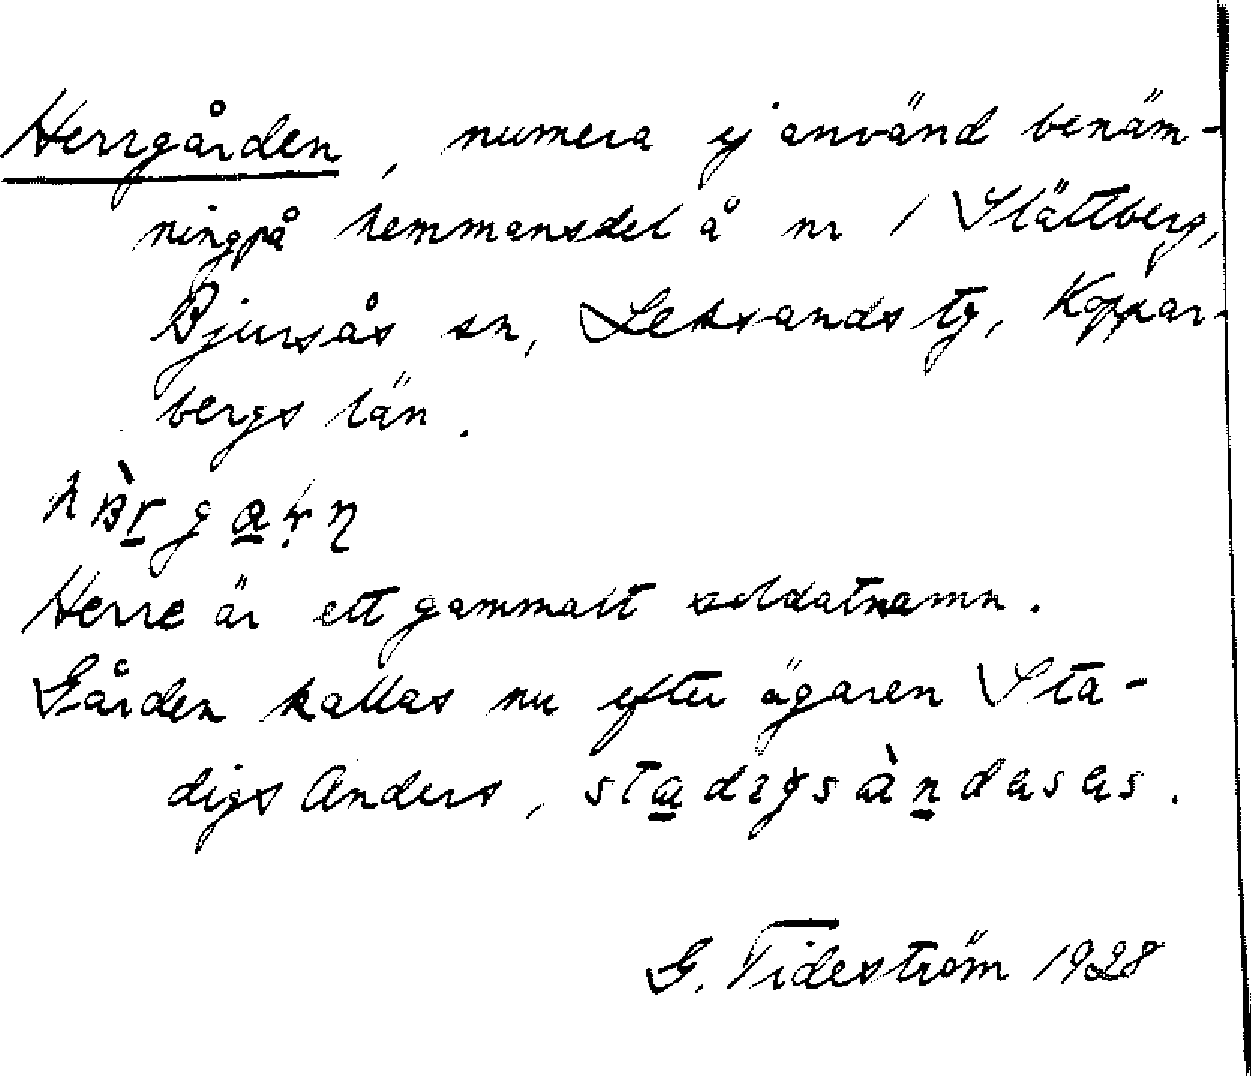 Herrgården, numera ej använd benäm-
ning på hemmansdel å nr 1 Slättberg,
Bjursås sn, Leksands tg, Koppar-
bergs län.
Herre är ett gammalt soldatnamn.
Gården kallas nu efter ägaren Sta-
digs Anders,
G. Tideström 1928